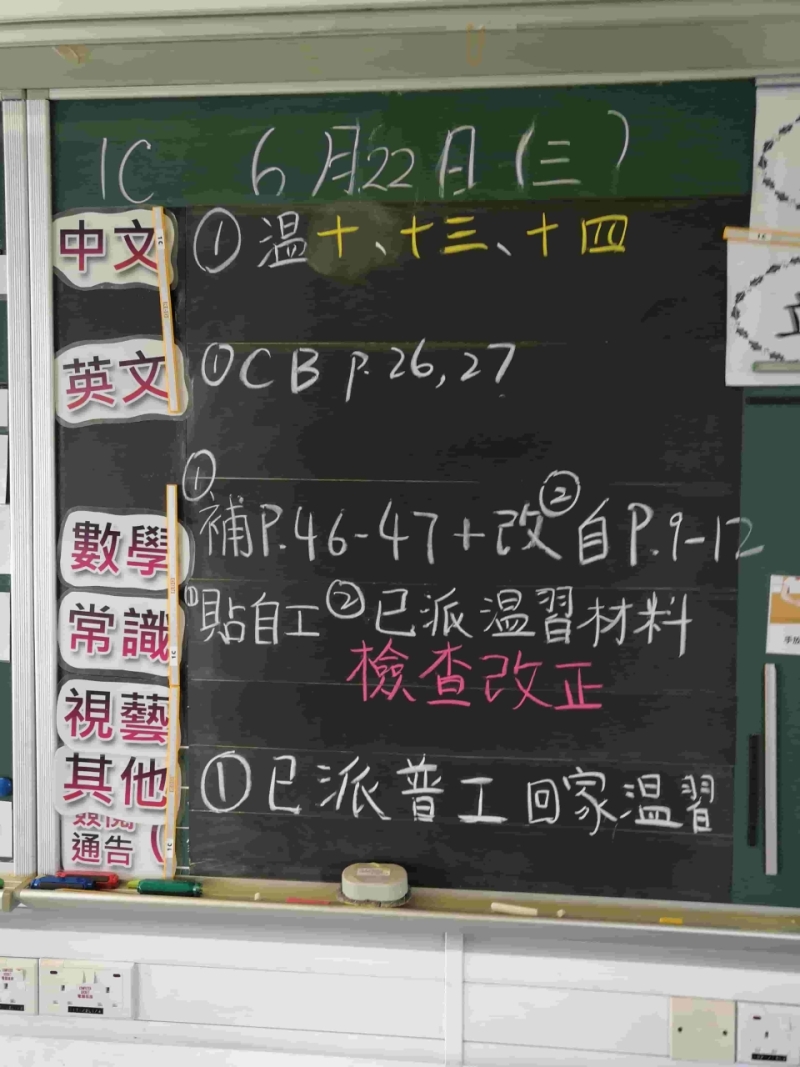 1C 6月22日(三)
中文 ①溫十、十三、十四
英文 ①CB p.26,27
數學 ①補P.46-47+改②自P.9-12
常識 ①貼自工②已派溫習材料
檢查改正
視藝
其他 ①已派普工回家溫習
簽閱
通告(